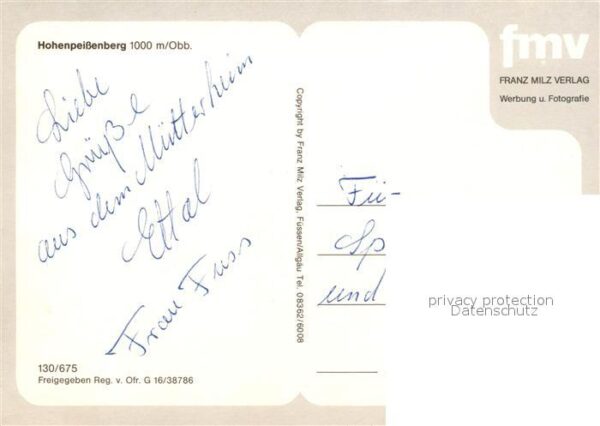 Hohenpeißenberg 1000 m/Obb.
Liebe
Grüße
aus dem Mütterheim
Ettal
Frau Fuss
130/675
Freigegeben Reg. v. Ofr. G 16/38786
Copyright by Franz Milz Verlag, Füssen/Allgäu Tel. 08362/6008
fmv
FRANZ MILZ VERLAG
Werbung u. Fotografie
Fri-
Sp
und
privacy protection
Datenschutz